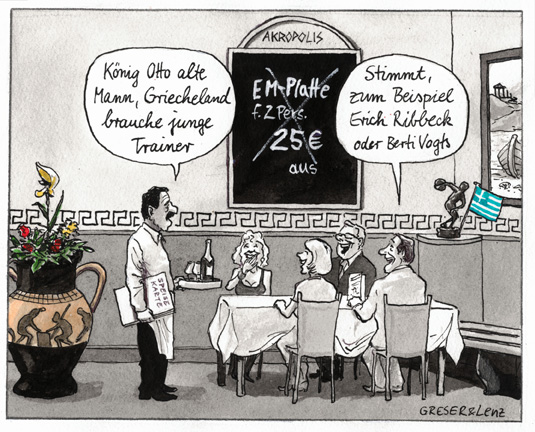 AKROPOLIS
König Otto alte
Mann, Griecheland
brauche junge
Trainer
EM-Platte
f. 2 Pers.
25€
aus
Stimmt,
zum Beispiel
Erich Ribbeck
oder Berti Vogts
SPEISE
KARTE
GRESER&LENZ